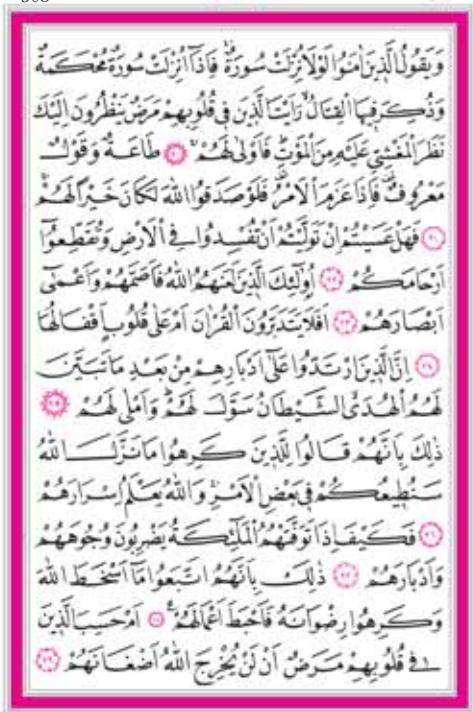 وَيَقُولُ الَّذِينَ اٰمَنُوا لَوْلَا نُزِّلَتْ سُورَةٌۚ فَاِذَٓا اُنْزِلَتْ سُورَةٌ مُحْكَمَةٌ
وَذُكِرَ فِيهَا الْقِتَالُۙ رَاَيْتَ الَّذِينَ فِي قُلُوبِهِمْ مَرَضٌ يَنْظُرُونَ اِلَيْكَ
نَظَرَ الْمَغْشِيِّ عَلَيْهِ مِنَ الْمَوْتِۜ فَاَوْلٰى لَهُمْۚ ﴿٢٠﴾ طَاعَةٌ وَقَوْلٌ
مَعْرُوفٌ۠ فَاِذَا عَزَمَ الْاَمْرُ۠ فَلَوْ صَدَقُوا اللّٰهَ لَكَانَ خَيْرًا لَهُمْۚ
﴿٢١﴾ فَهَلْ عَسَيْتُمْ اِنْ تَوَلَّيْتُمْ اَنْ تُفْسِدُوا فِي الْاَرْضِ وَتُقَطِّعُٓوا
اَرْحَامَكُمْ ﴿٢٢﴾ اُو۬لٰٓئِكَ الَّذِينَ لَعَنَهُمُ اللّٰهُ فَاَصَمَّهُمْ وَاَعْمٰٓى
اَبْصَارَهُمْ ﴿٢٣﴾ اَفَلَا يَتَدَبَّرُونَ الْقُرْاٰنَ اَمْ عَلٰى قُلُوبٍ اَقْفَالُهَا
﴿٢٤﴾ اِنَّ الَّذِينَ ارْتَدُّوا عَلٰٓى اَدْبَارِهِمْ مِنْ بَعْدِ مَا تَبَيَّنَ
لَهُمُ الْهُدَىۙ الشَّيْطَانُ سَوَّلَ لَهُمْۜ وَاَمْلٰى لَهُمْ ﴿٢٥﴾
ذٰلِكَ بِاَنَّهُمْ قَالُوا لِلَّذِينَ كَرِهُوا مَا نَزَّلَ اللّٰهُ
سَنُطِيعُكُمْ فِي بَعْضِ الْاَمْرِۚ وَاللّٰهُ يَعْلَمُ اِسْرَارَهُمْ
﴿٢٦﴾ فَكَيْفَ اِذَا تَوَفَّتْهُمُ الْمَلٰٓئِكَةُ يَضْرِبُونَ وُجُوهَهُمْ
وَاَدْبَارَهُمْ ﴿٢٧﴾ ذٰلِكَ بِاَنَّهُمُ اتَّبَعُوا مَٓا اَسْخَطَ اللّٰهَ
وَكَرِهُوا رِضْوَانَهُ فَاَحْبَطَ اَعْمَالَهُمْ۟ ﴿٢٨﴾ اَمْ حَسِبَ الَّذِينَ
فِي قُلُوبِهِمْ مَرَضٌ اَنْ لَنْ يُخْرِجَ اللّٰهُ اَضْغَانَهُمْ ﴿٢٩﴾